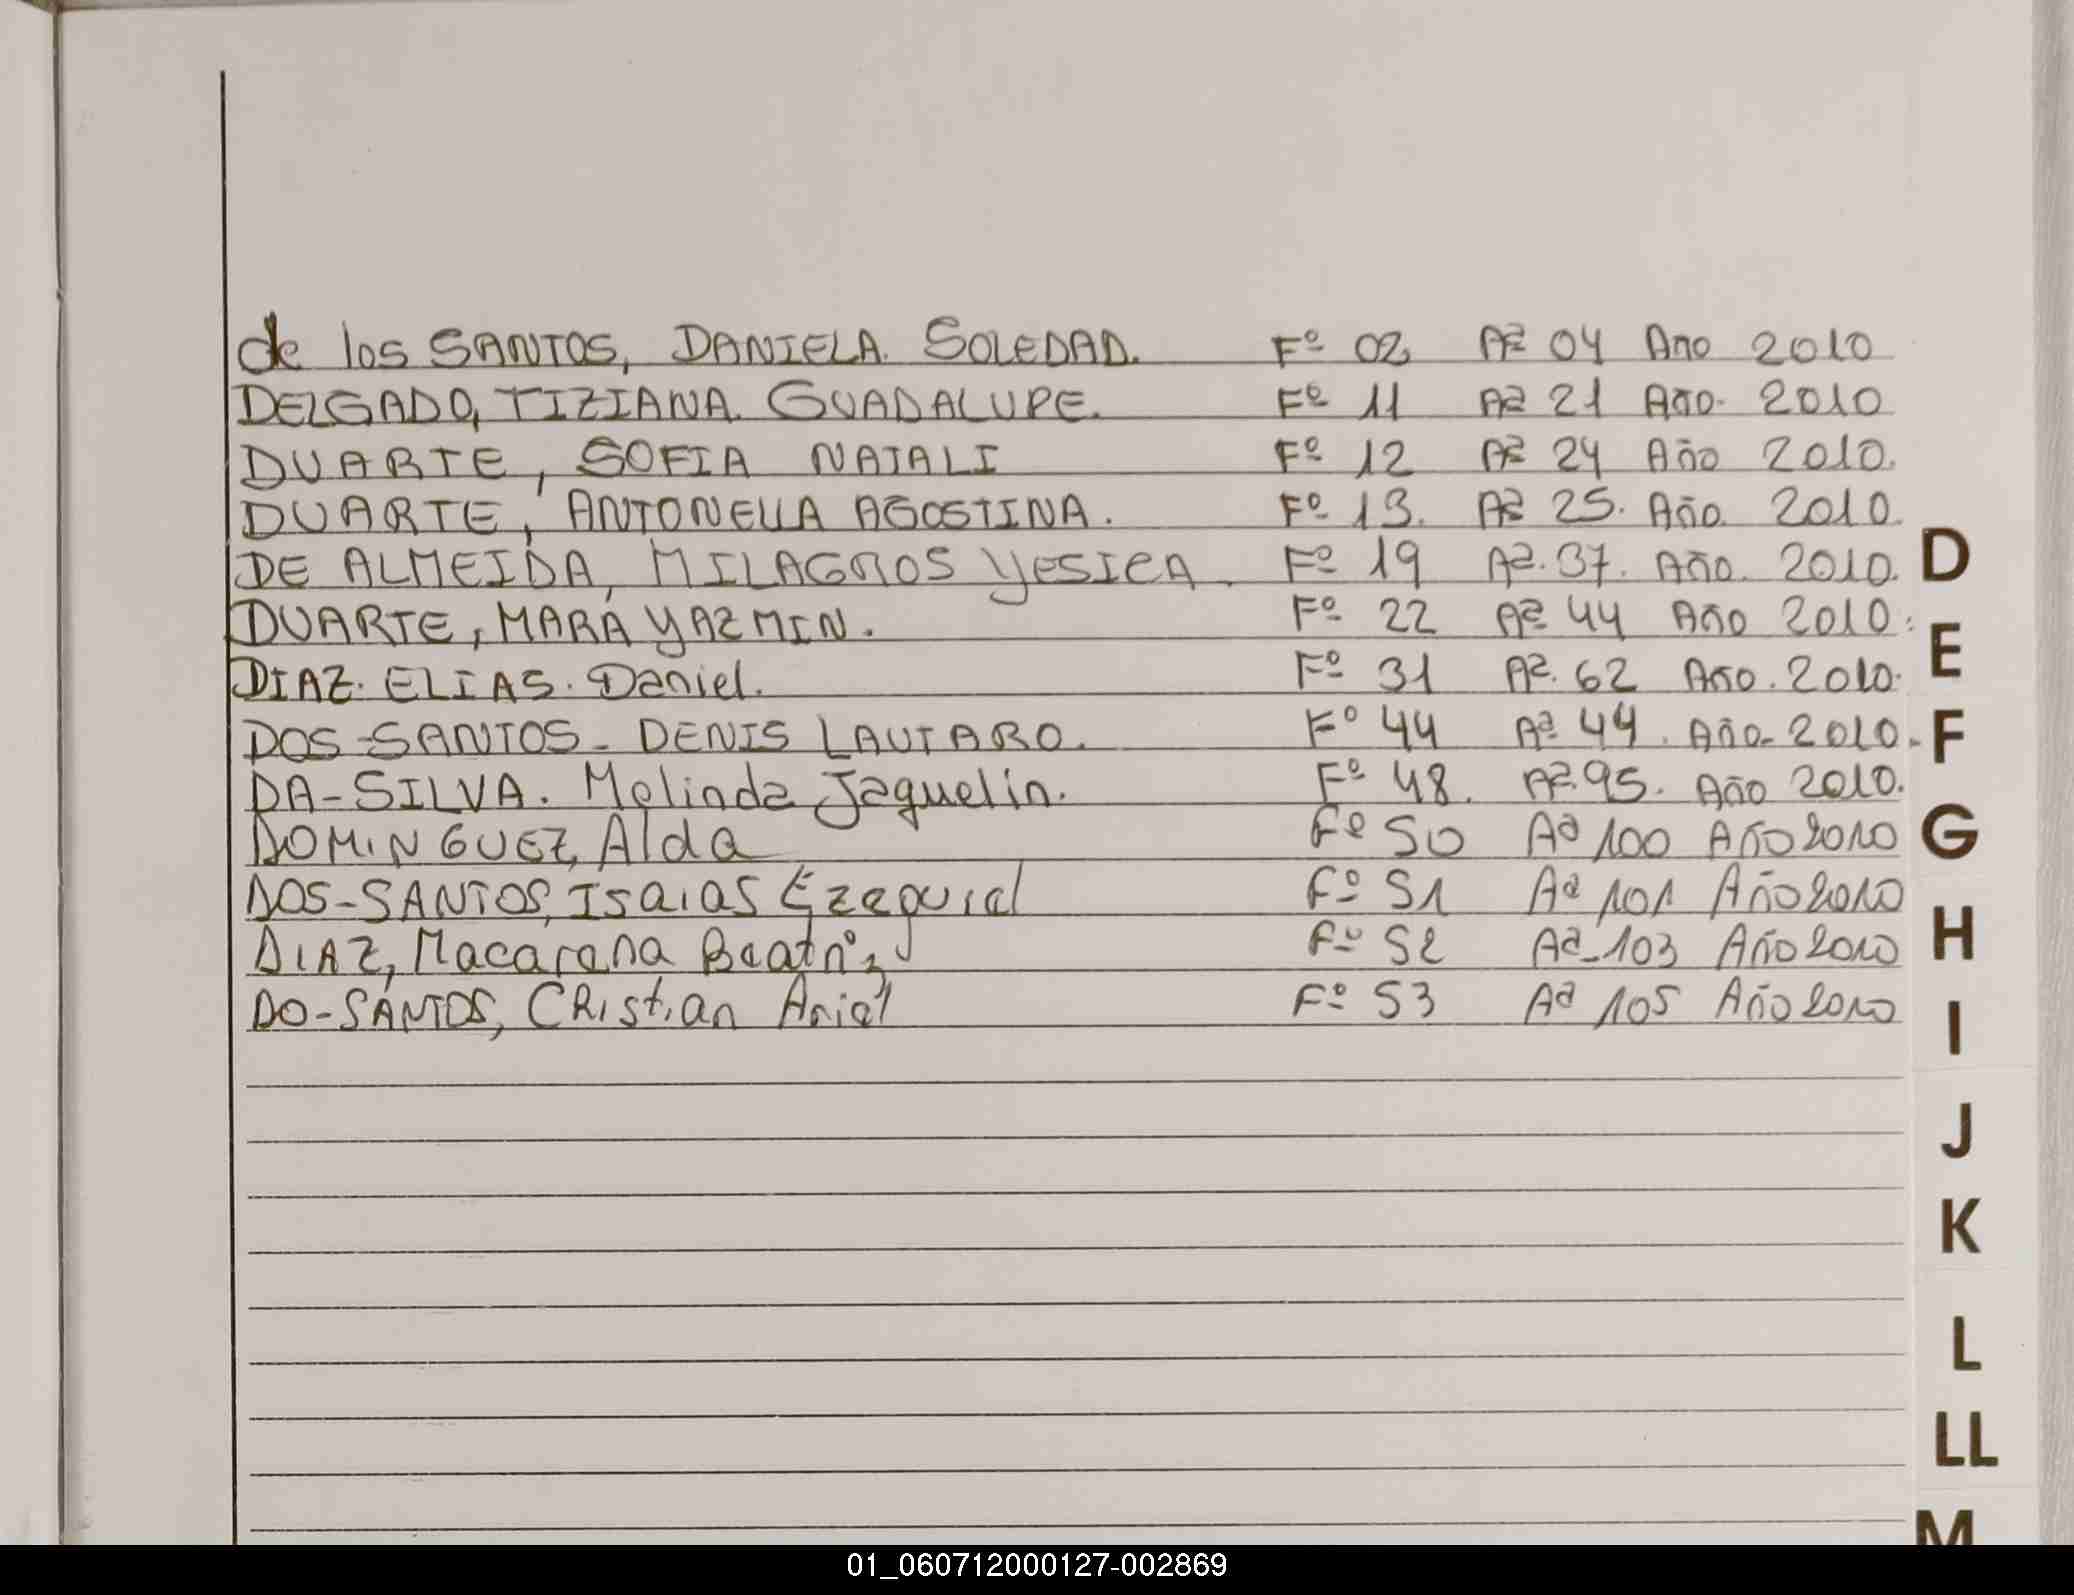 de los SANTOS, DANIELA. SOLEDAD. Fº 02 Aª 04 Año 2010
DELGADO, TIZIANA. GUADALUPE. Fº 11 Aª 21 Año. 2010
DUARTE, SOFIA NATALI Fº 12 Aª 24 Año 2010.
DUARTE, ANTONELLA AGOSTINA. Fº 13. Aª 25. Año. 2010.
DE ALMEIDA, MILAGROS YESICA. Fº 19 Aª. 37. Año. 2010.
DUARTE, MARA YAZMIN. Fº 22 Aª 44 Año 2010.
DIAZ. ELIAS. Daniel. Fº 31 Aª. 62 Año. 2010.
DOS-SANTOS- DENIS LAUTARO. Fº 44 Aª 49. Año- 2010.-
DA-SILVA. Melinda Jaquelin. Fº 48. Aª 95. Año 2010.
DOMINGUEZ, Alda Fº 50 Aª 100 Año 2010
DOS-SANTOS, Isaias Ezequiel Fº 51 Aª 101 Año 2010
DIAZ, Macarena Beatriz Fº 52 Aª-103 Año 2010
DO-SANTOS, CRistian Ariel Fº 53 Aª 105 Año 2010
D
E
F
G
H
I
J
K
L
LL
M
01_060712000127-002869